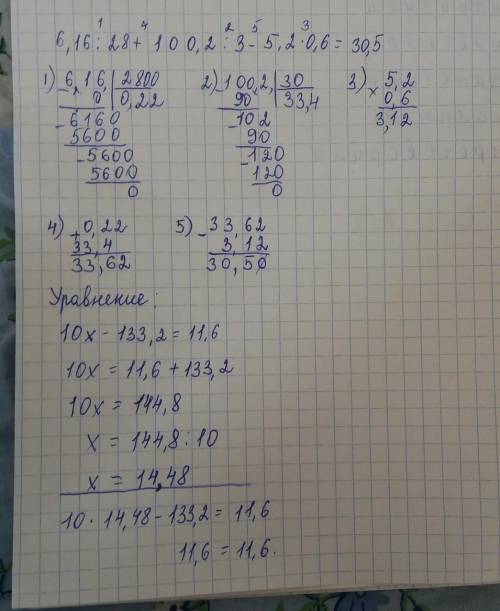 1 4 2 5 3
6,16 : 28 + 100,2 : 3 - 5,2 · 0,6 = 30,5
1) - 6,16, | 2800 2) - 100,2, | 30 3) × 5,2
0 | 0,22 90 | 33,4 0,6
- 6160 - 102 3,12
5600 90
- 5600 - 120
5600 120
0 0
4) + 0,22 5) - 33,62
33,4 3,12
33,62 30,50
Уравнение:
10x - 133,2 = 11,6
10x = 11,6 + 133,2
10x = 144,8
x = 144,8 : 10
x = 14,48
10 · 14,48 - 133,2 = 11,6
11,6 = 11,6.